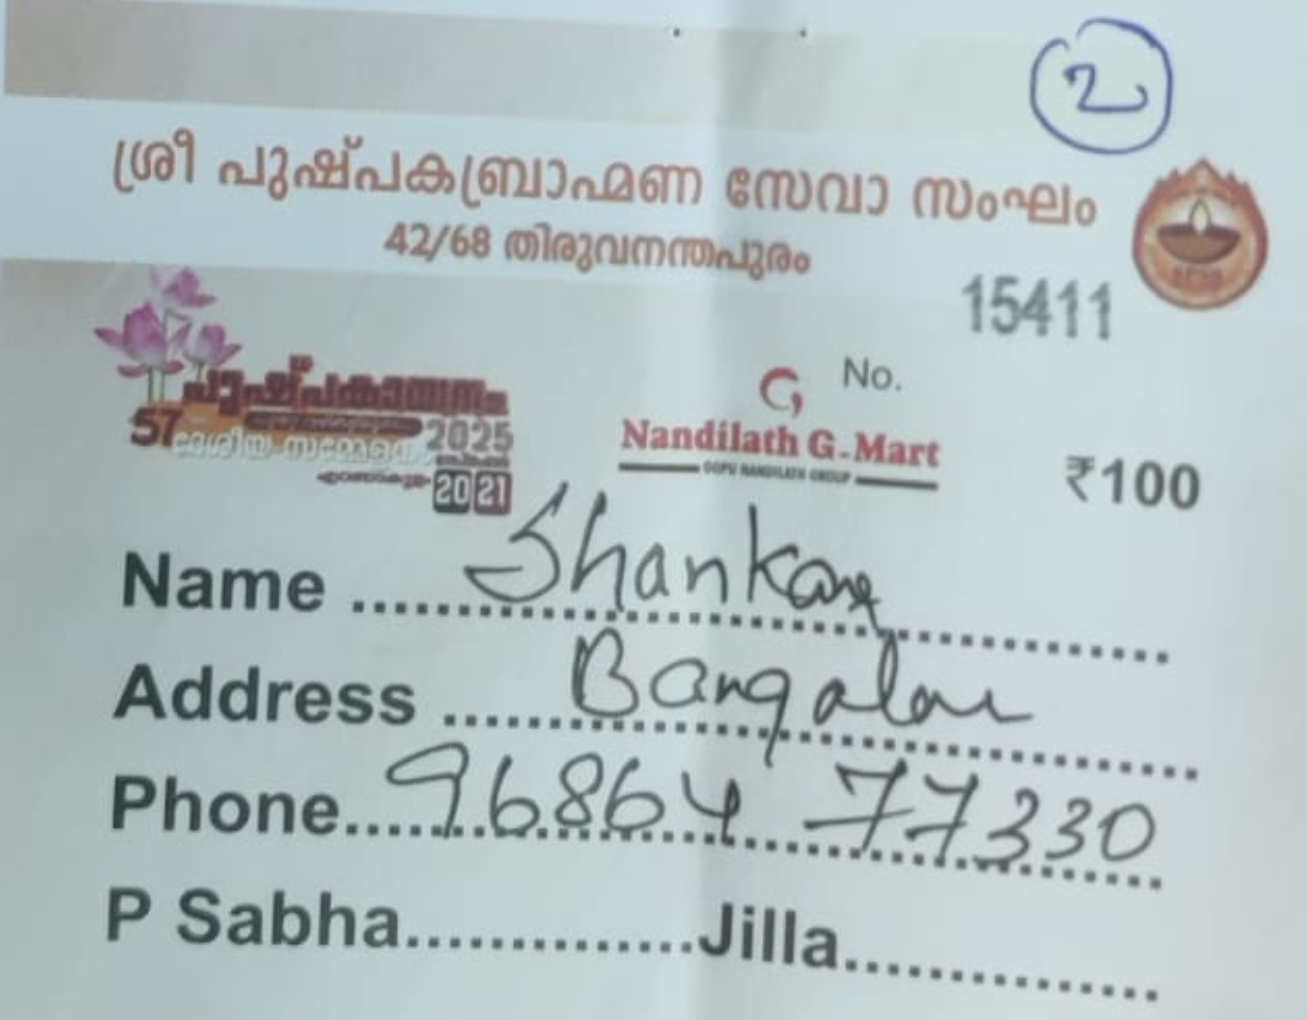 2
ശ്രീ പുഷ്പകബ്രാഹ്മണ സേവാ സംഘം
42/68 തിരുവനന്തപുരം
15411
No.
പുഷ്പകായനം
57
2025
20 21
Nandilath G-Mart
GOPU NANDILATH GROUP
₹100
Name Shankar
Address Bangalore
Phone 96864 77330
P Sabha..............Jilla...............